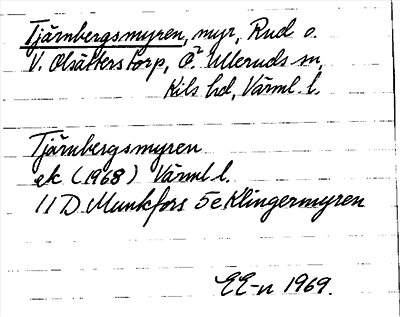 Tjärnbergsmyren, myr, Rud o.
V. Olsätters torp, Ö. Ulleruds sn,
Kils hd, Värml. l.
Tjärnbergsmyren
ek (1968) Värml l.
11D Munkfors 5e Klingermyren
EE-n 1969.